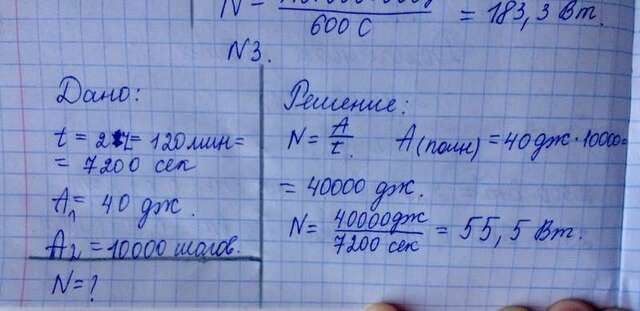 N =
600 С
= 183,3 Вт.
N3.
Дано:
t = 2ч = 120 мин =
= 7200 сек
A₁ = 40 дж.
A₂ = 10000 шагов.
N = ?
Решение:
N = A/t. A(полн) = 40 дж · 10000 =
= 40000 дж.
N = 40000 дж / 7200 сек = 55,5 Вт.